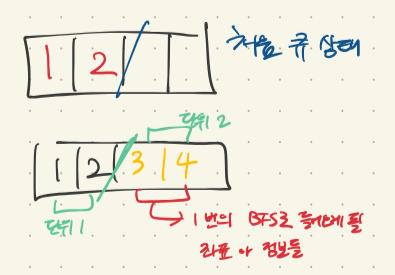 1 2
처음 큐 상태
단위 2
1 2 3 4
단위 1
1번의 BFS로 들어가게 될
좌표 정보들